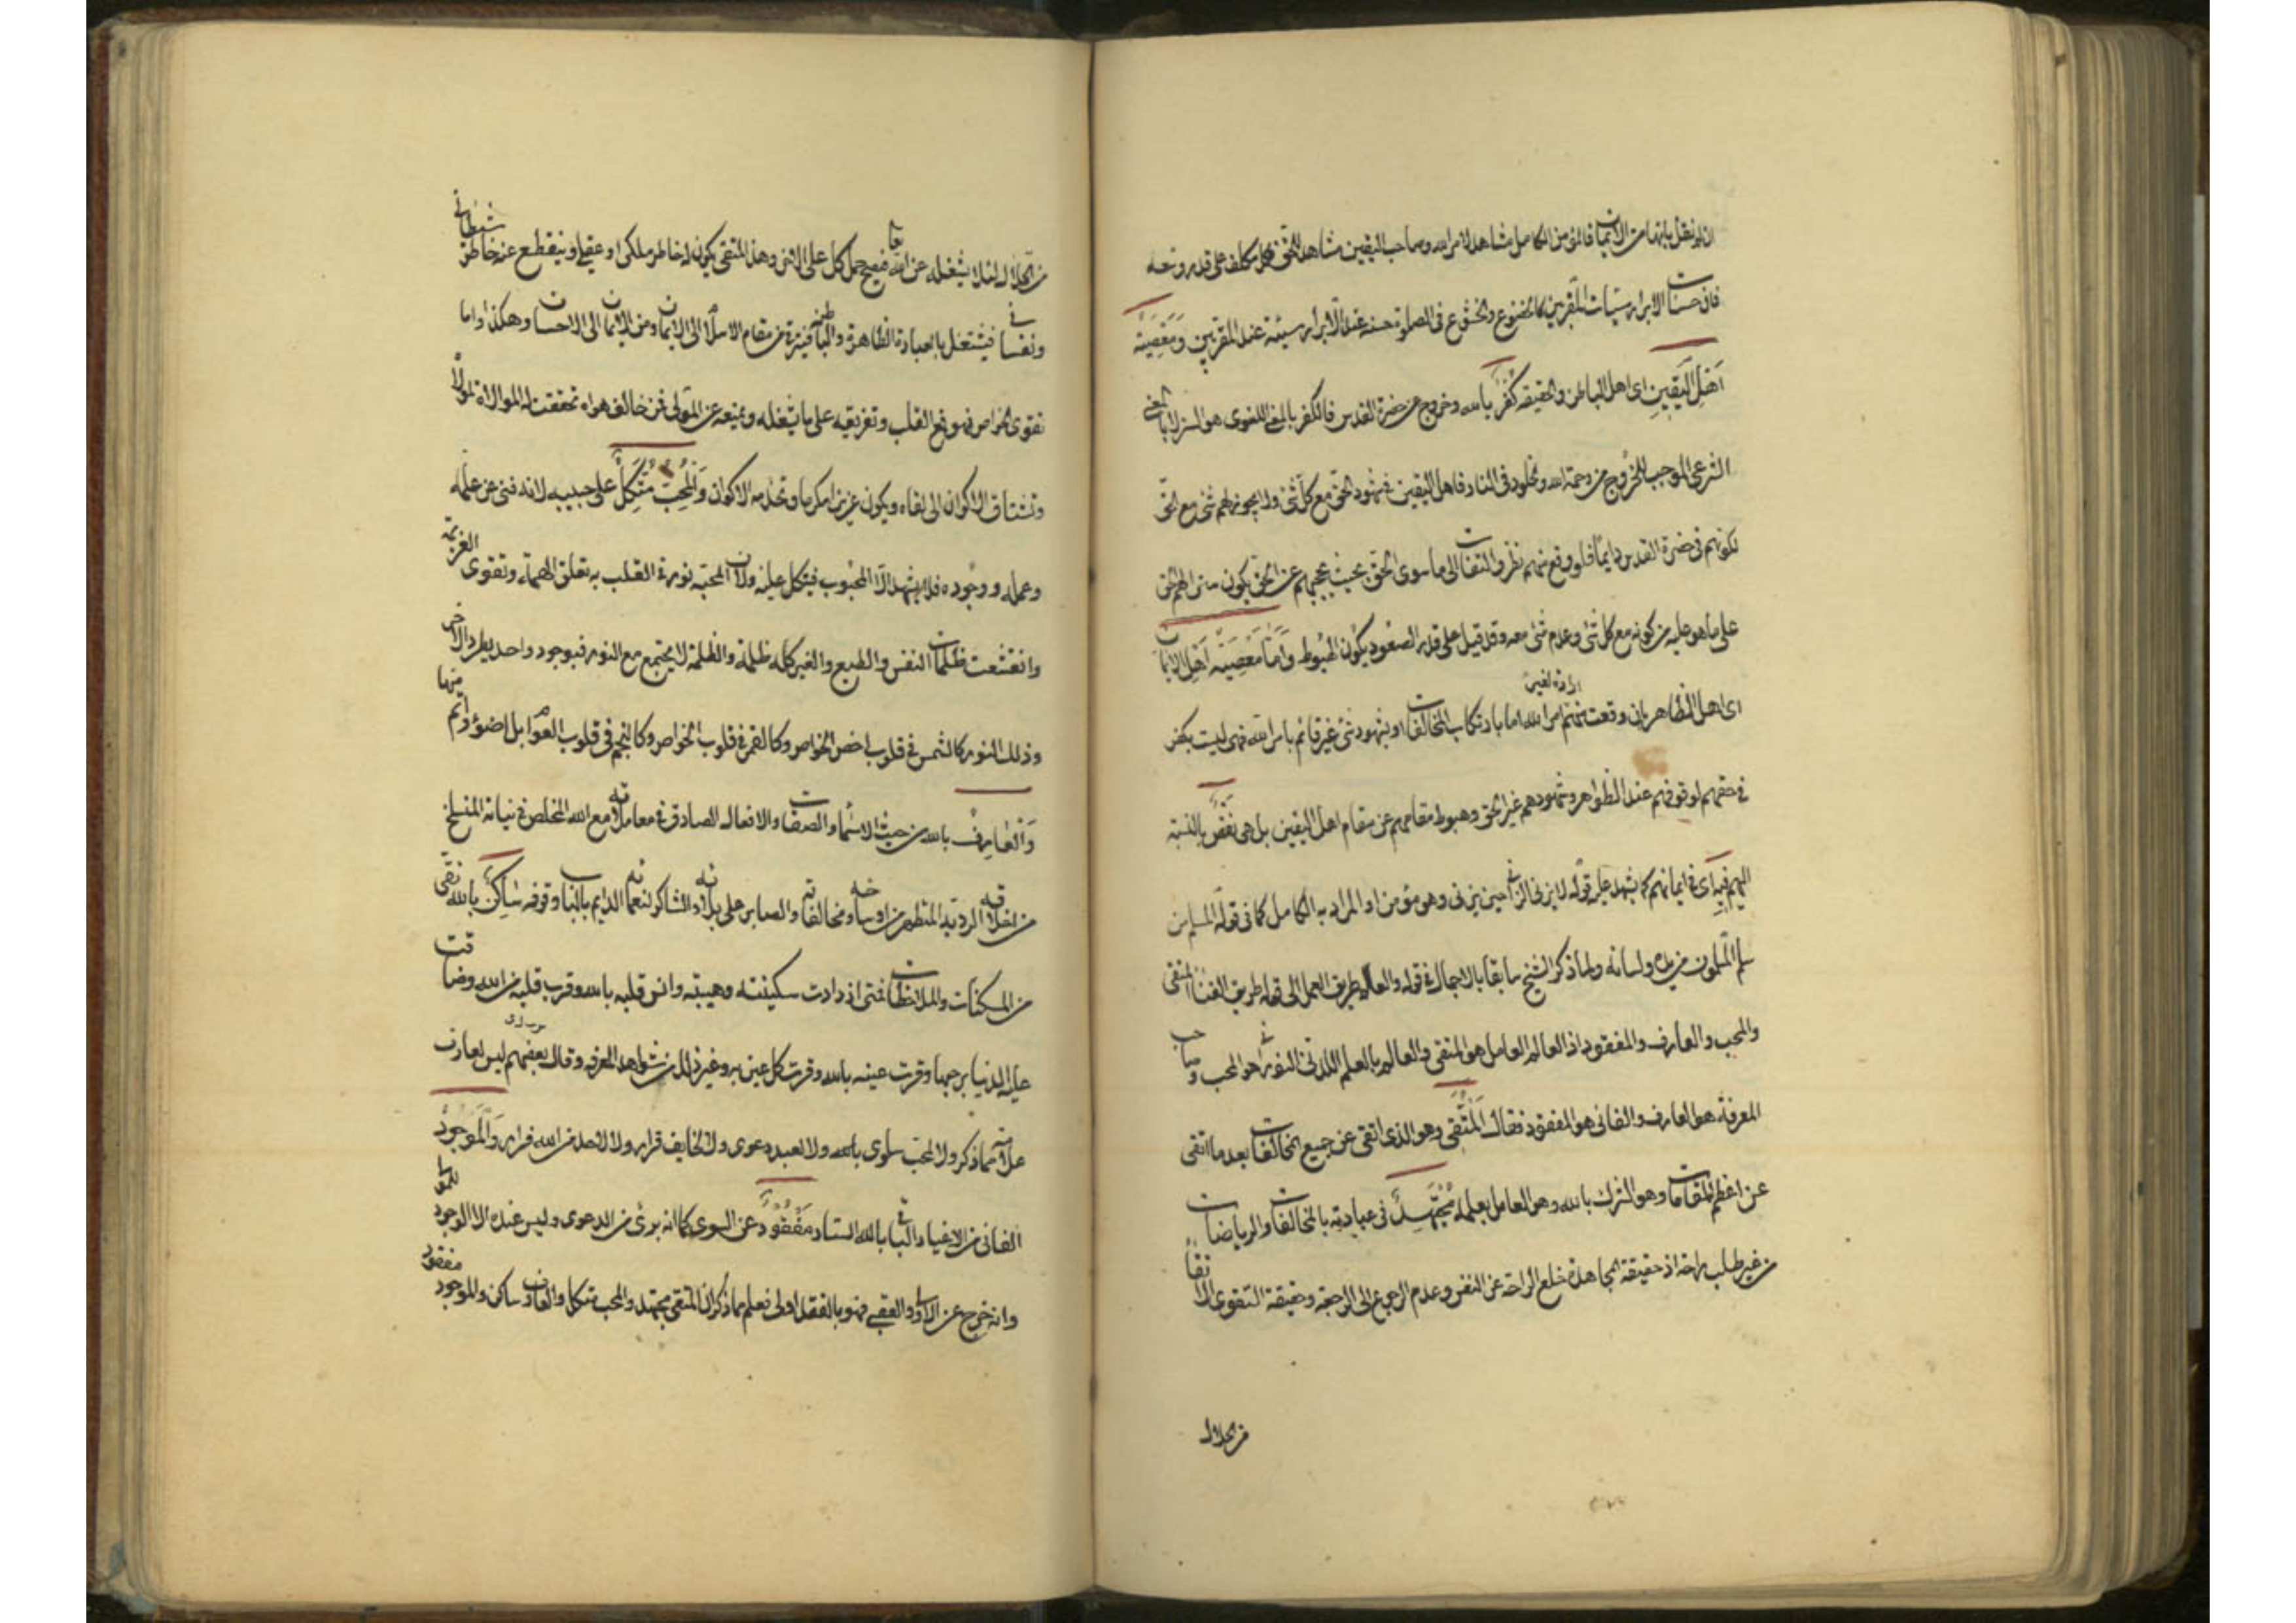 ان لم نقل بانتهاء الايمان فالمؤمن الكامل مشاهد لامر الله وصاحب اليقين مشاهد للحق فكل مكلف على قدر وسعه
فان حسنات الابرار سيئات المقربين كالخضوع والخشوع فى الصلوة حسنة عند الابرار سيئة عند المقربين وَمَعْصِيَة
اَهْلِ الْيَقِينِ اى اهل الباطن والحقيقه كُفْرٌ بالله وخروج عن حضرة القدس فالكفر بالمعنى اللغوى هو الستر لا بالمعنى
الشرعى الموجب للخروج من رحمة الله والخلود فى النار فاهل اليقين فى شهود الحق مع كل شئ ولا يجوز لهم شئ مع الحق
لكونهم فى حضرة القدس دايما فلو وقع منهم نظر والتفات الى ما سوى الحق بحيث يحجبهم عن الحق يكون ستر لهم الحق
على ما هو عليه من كونه مع كل شئ وعدم شئ معه وقد قيل على قدر الصعود يكون الهبوط وَاَمَّا مَعْصِيَة اَهْلِ الايمان
اى اهل الظاهر بان وقعت منهم ارادة لغير امر الله اما بارتكاب المخالفات او بشهود شئ غير قائم بامر الله فهى ليست بكفر
فى حقهم لوقوفهم عند الظواهر وشهودهم غير الحق وهبوط مقامهم عن مقام اهل اليقين بل هى نَقْصٌ بالنسبة
اليهم فِيهِ اى فى ايمانهم كما يشهد عليه قوله لا يزنى الزانى حين يزنى وهو مؤمن اذ المراد به الكامل كما فى قوله المسلم من
سلم المسلمون من يده ولسانه ولما ذكر الشيخ سابقا بالاجمال فى قوله والعالم طريق العمل الى قوله طريق الفناء المتقى
والمحب والعارف والمفقود اذ العالم العامل هو المتقى والعالم بالعلم اللدنى النورانى هو المحب وصاحب
المعرفة هو العارف والفانى هو المفقود فقال اَلْمُتَّقِى وهو الذى اتقى عن جميع المخالفات بعد ما اتقى
عن اعظم وهو الشرك بالله وهو العامل بعلمه مُجْتَهِدٌ فى عبادته بالمخالفات والرياضات
من غير طلب راحة اذ حقيقة المجاهدة خلع الراحة عن النفس وعدم الرجوع الى الرحمة وحقيقة التقوى الاتقاء
من الحلال
من الحلال لئلا يشغله عن الله تعا فيصح حمل كل على الاخر وهذا المتقى يكون له خاطر ملكى او عقلى وينقطع عنه خاطر شيطانى
ونفسانى فيشتغل بالعبادة الظاهرة والباطنة فيترقى من مقام الاسلام الى الايمان ومن الايمان الى الاحسان وهكذا واما
تقوى الخواص فهو رفع القلب وتفريقه على ما يشغله ويمنعه عن المولى فمن خالف هواه تحققت له الموالاة لمولاه
وتشتاق الاكوان الى لقاه ويكون عزيزا مكرما وتخدمه الاكوان وَالْمُحِبُّ مُتَّكِلٌ على حبيبه لانه فنى عن علمه
وعمله ووجوده فلا يشهد الا المحبوب فيتكل عليه ولان المحبة نور فى القلب به تعلق الهمة وتقوى العزيمة
وانقشعت ظلمات النفس والطبع والغير كله ظلمة والظلمة لا يجتمع مع النور فبوجود واحد يطرد الاخر
وذلك النور كالشمس فى قلوب اخص الخواص وكالقمر فى قلوب الخواص وكالنجم فى قلوب العوام بل اضوء واتم منها
وَالْعَارِفُ بالله من حيث الاسماء والصفات والافعال الصادق فى معاملاته مع الله المخلص فى نياته المنسلخ
من اخلاقه الردية المتطهر من اوساخه ومخالفاته والصابر على بلائه الشاكر لنعمائه الدايم بالباب وقوفه سَاكِنٌ بالله نقى
من المسكنات والملاحظات فمتى ازدادت سكينته وهيبته وانس قلبه بالله وقرب قلبه من الله وضاقت
عليه الدنيا برحبها وقرت عينه بالله وقرت كل عين به وغير ذلك من شواهد المعرفة وقال بعضهم ليس لعارف
علاقة ولا لمحب سلوى بالله ولا لعبد دعوى ولا لخايف قرار ولا لاحد من الله فرار وَالْمَوْجُودُ
الفانى من الاغيار والباقى بالله الستار مَفْقُودٌ عن السوى كما انه برئ من الدعوى وليس عنده الا الوجود للمولى
وانه خرج عن الدنيا والعقبى فهو بالفقد اولى فعلم مما ذكر ان المتقى مجتهد والمحب متكل والعارف ساكن والموجود مفقود